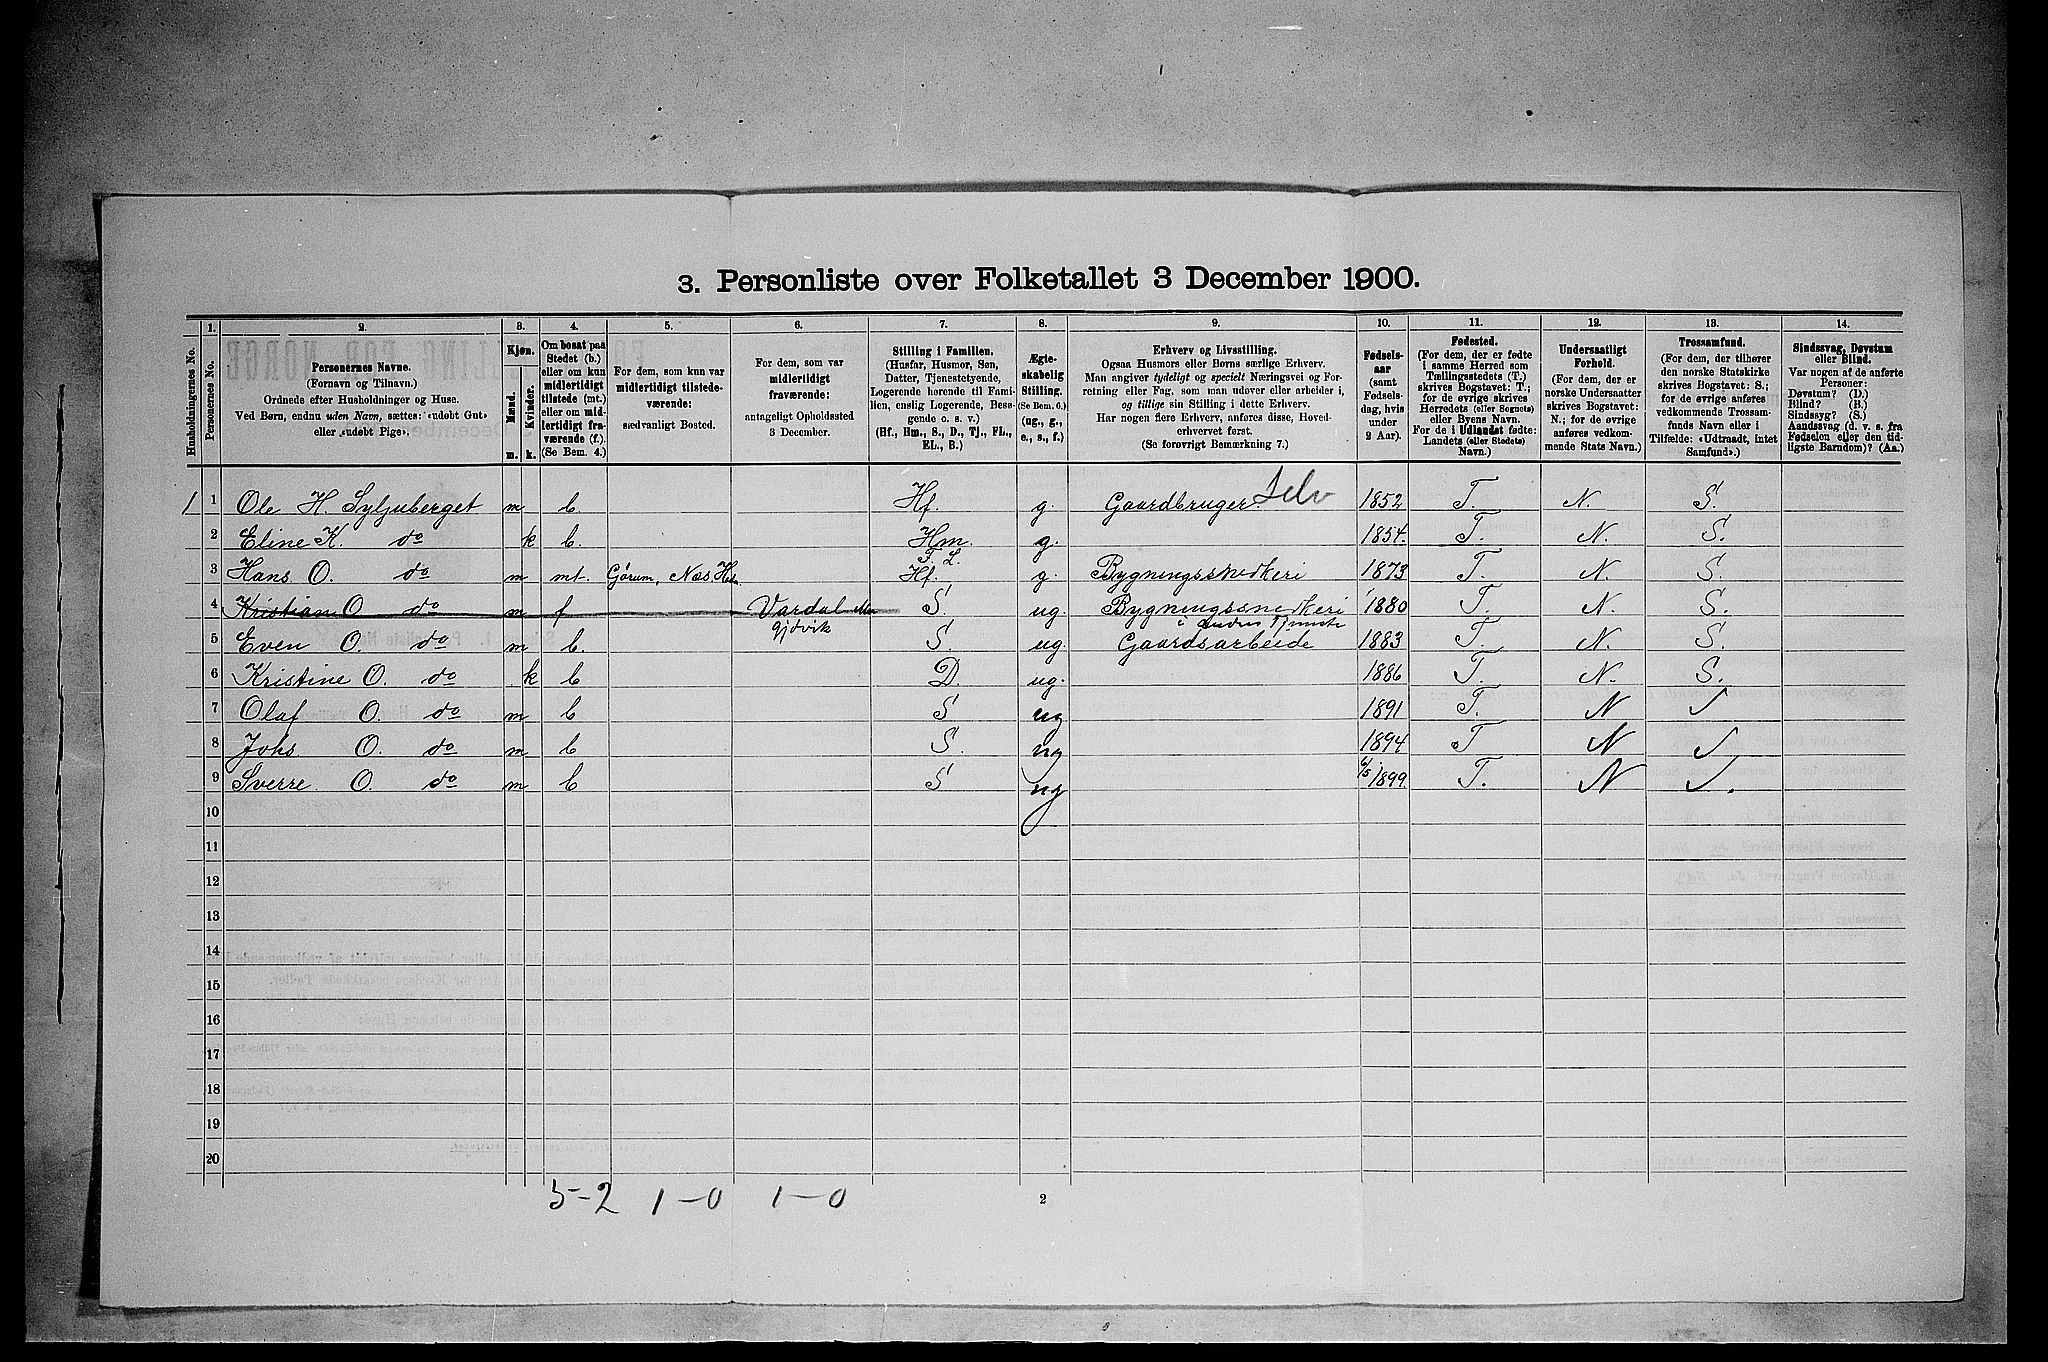 3. Personliste over Folketallet 3 December 1900.
1. 2. 3. 4. 5. 6. 7. 8. 9. 10. 11. 12. 13. 14.
Husholdningernes No.
Personernes No.
Personernes Navne.
(Fornavn og Tilnavn.)
Ordnede efter Husholdninger og Huse.
Ved Børn, endnu uden Navn, sættes: «udøbt Gut»
eller «udøbt Pige».
Kjøn.
Mænd.
Kvinder.
m. k.
Om bosat paa
Stedet (b.)
eller om kun
midlertidigt
tilstede (mt.)
eller om mid-
lertidigt fra-
værende (f.).
(Se Bem. 4.)
For dem, som kun var
midlertidigt tilstede-
værende:
sædvanligt Bosted.
For dem, som var
midlertidigt
fraværende:
antageligt Opholdssted
3 December.
Stilling i Familien.
(Husfar, Husmor, Søn,
Datter, Tjenestetyende,
Logerende hørende til Fami-
lien, enslig Logerende, Besø-
gende o. s. v.)
(Hf., Hm., S., D., Tj., FL.,
EL., B.)
Ægte-
skabelig
Stilling.
(Se Bem. 6.)
(ug., g.,
e., s., f.)
Erhverv og Livsstilling.
Ogsaa Husmors eller Børns særlige Erhverv.
Man angiver tydeligt og specielt Næringsvei og For-
retning eller Fag, som man udøver eller arbeider i,
og tillige sin Stilling i dette Erhverv.
Har nogen flere Erhverv, anføres disse, Hoved-
erhvervet først.
(Se forøvrigt Bemærkning 7.)
Fødsels-
aar
(samt
Fødsels-
dag, hvis
under
2 Aar).
Fødested.
(For dem, der er fødte
i samme Herred som
Tællingsstedets (T.)
skrives Bogstavet: T.;
for de øvrige skrives
Herredets (eller Sognets)
eller Byens Navn.
For de i Udlandet fødte:
Landets (eller Stedets)
Navn.)
Undersaatligt
Forhold.
(For dem, der er
norske Undersaatter
skrives Bogstavet:
N.; for de øvrige
anføres vedkom-
mende Stats Navn.)
Trossamfund.
(For dem, der tilhører
den norske Statskirke
skrives Bogstavet: S.;
for de øvrige anføres
vedkommende Trossam-
funds Navn eller i
Tilfælde: «Udtraadt, intet
Samfund».)
Sindssvag, Døvstum
eller Blind.
Var nogen af de anførte
Personer:
Døvstum? (D.)
Blind? (B.)
Sindssyg? (S.)
Aandssvag (d. v. s. fra
Fødselen eller den tid-
ligste Barndom)? (Aa.)
1 1 Ole H. Syljuberget m b. Hf. g. Gaardbruger. Selv 1852 T. N. S.
2 Eline K. do k b. Hm. g. 1854. T. N. S.
F. L.
3 Hans O. do m mt. Gårum, Næs. Hf. g. Bygningssnedkeri 1873 T. N. S.
4 Kristian O do m f Vardal S. ug. Bygningssnedkeri 1880 T. N. S.
Gjøvik i andres Tjeneste
5 Even O. do m b. S. ug. Gaardsarbeide 1883 T. N. S.
6 Kristine O. do k b D. ug. 1886 T. N. S.
7 Olaf O. do m b S ug 1891 T. N S
8 Johs O. do m b S. ug 1894 T N S
9 Sverre O. do m b S ug 6/5 1899. T. N S.
10
11
12
13
14
15
16
17
18
19
20
5-2 1-0 1-0
2